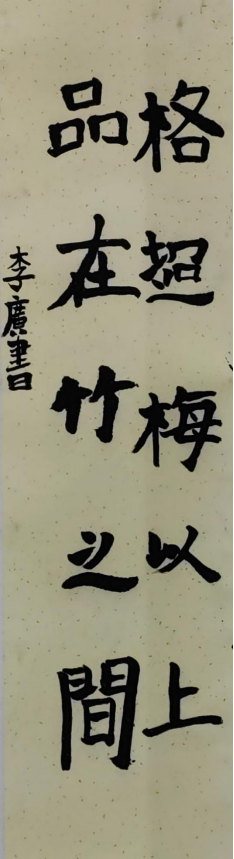 格超梅以上
品在竹之間
李廣書